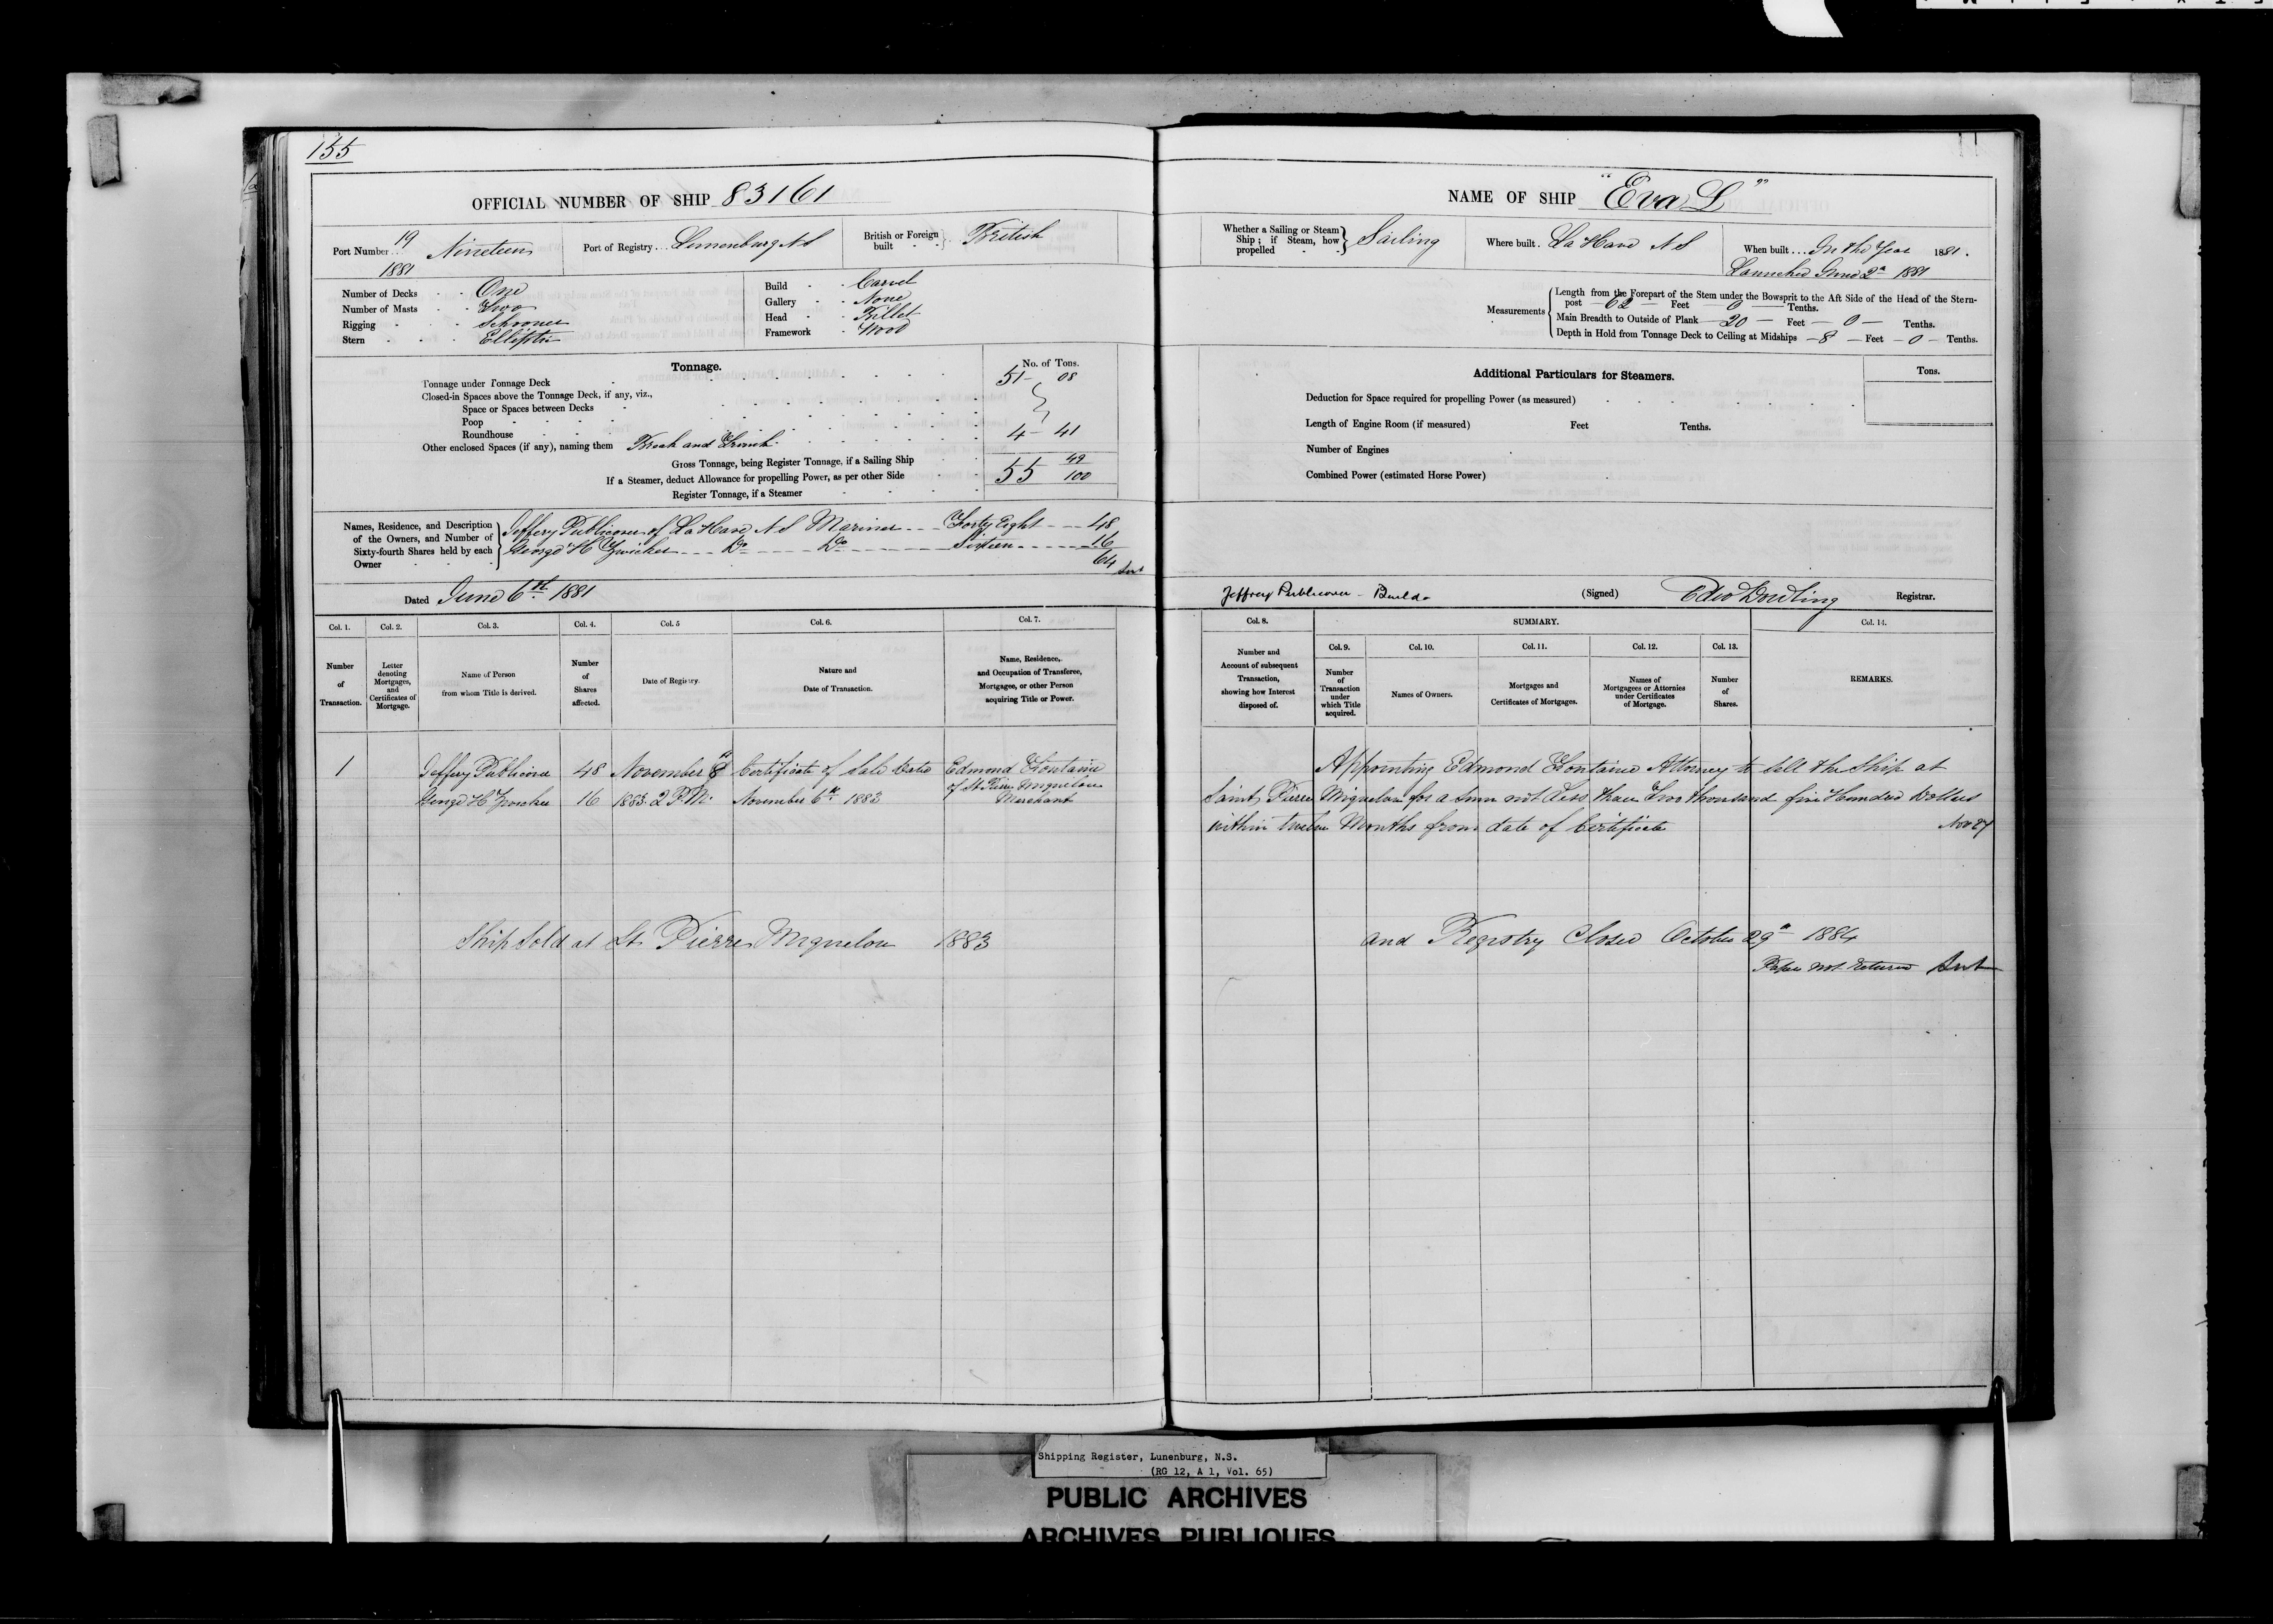 155
OFFICIAL NUMBER OF SHIP 83161
Port Number 19 1881 Nineteen
Port of Registry Lunenburg N S
British or Foreign built British
Number of Decks One
Number of Masts Two
Rigging Schooner
Stern Elliptic
Build Carvel
Gallery None
Head Billet
Framework Wood
Tonnage.
No. of Tons.
Tonnage under Tonnage Deck 51 - 08
Closed-in Spaces above the Tonnage Deck, if any, viz.,
Space or Spaces between Decks
Poop
Roundhouse
Other enclosed Spaces (if any), naming them Break and Trunk 4 - 41
Gross Tonnage, being Register Tonnage, if a Sailing Ship 55 49/100
If a Steamer, deduct Allowance for propelling Power, as per other Side
Register Tonnage, if a Steamer
Names, Residence, and Description of the Owners, and Number of Sixty-fourth Shares held by each Owner
Jeffery Publicover of La Have N S Mariner Forty Eight 48
George H Zwicker Do Do Sixteen 16
64
Dated June 6th 1881
Col. 1. Col. 2. Col. 3. Col. 4. Col. 5 Col. 6. Col. 7.
Number of Transaction.
Letter denoting Mortgages, and Certificates of Mortgage.
Name of Person from whom Title is derived.
Number of Shares affected.
Date of Registry.
Nature and Date of Transaction.
Name, Residence, and Occupation of Transferee, Mortgagee, or other Person acquiring Title or Power.
1 Jeffery Publicover 48 November 8th Certificate of Sale Dated Edmond Fontaine
George H Zwicker 16 1883. 2 P.M. November 6th 1883 of St Pierre Miquelon
Merchant
Ship Sold at St. Pierre Miquelon 1883
NAME OF SHIP "Eva L"
Whether a Sailing or Steam Ship; if Steam, how propelled Sailing
Where built La Have N S
When built In the Year 1881.
Launched June 2d 1881
Measurements
Length from the Forepart of the Stem under the Bowsprit to the Aft Side of the Head of the Stern-
post 62 Feet 0 Tenths.
Main Breadth to Outside of Plank 20 Feet 0 Tenths.
Depth in Hold from Tonnage Deck to Ceiling at Midships 8 Feet 0 Tenths.
Additional Particulars for Steamers.
Tons.
Deduction for Space required for propelling Power (as measured)
Length of Engine Room (if measured) Feet Tenths.
Number of Engines
Combined Power (estimated Horse Power)
Jeffrey Publicover - Builder
(Signed) Edw Dowling Registrar.
Col. 8. SUMMARY. Col. 14.
Col. 9. Col. 10. Col. 11. Col. 12. Col. 13.
Number and Account of subsequent Transaction, showing how Interest disposed of.
Number of Transaction under which Title acquired.
Names of Owners.
Mortgages and Certificates of Mortgages.
Names of Mortgagees or Attornies under Certificates of Mortgage.
Number of Shares.
REMARKS.
Appointing Edmond Fontaine Attorney to sell the Ship at
Saint Pierre Miquelon for a Sum not Less than Two thousand five Hundred Dollars
within twelve Months from date of Certificate
and Registry Closed October 29th 1884
Papers not returned
Shipping Register, Lunenburg, N.S.
(RG 12, A 1, Vol. 65)
PUBLIC ARCHIVES
ARCHIVES PUBLIQUES